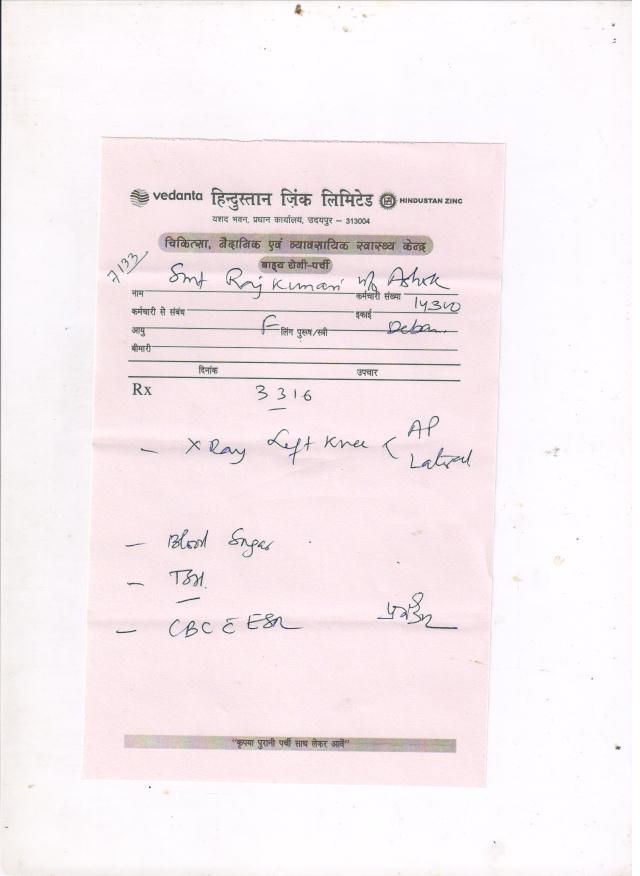 vedanta हिन्दुस्तान ज़िंक लिमिटेड HINDUSTAN ZINC
यशद भवन, प्रधान कार्यालय, उदयपुर – 313004
चिकित्सा, नैदानिक एवं व्यावसायिक स्वास्थ्य केन्द्र
बाह्य रोगी-पर्ची
7133
Smt Raj Kumari w/o Ashok
नाम कर्मचारी संख्या 14340
कर्मचारी से संबंध इकाई
आयु F लिंग पुरूष/स्त्री
बीमारी
दिनांक उपचार
Rx 3 3 16
– X Ray Left Knee < AP
Lateral
– Blood Sugar
– TSH.
– CBC c̄ ESR
"कृपया पुरानी पर्ची साथ लेकर आवें"